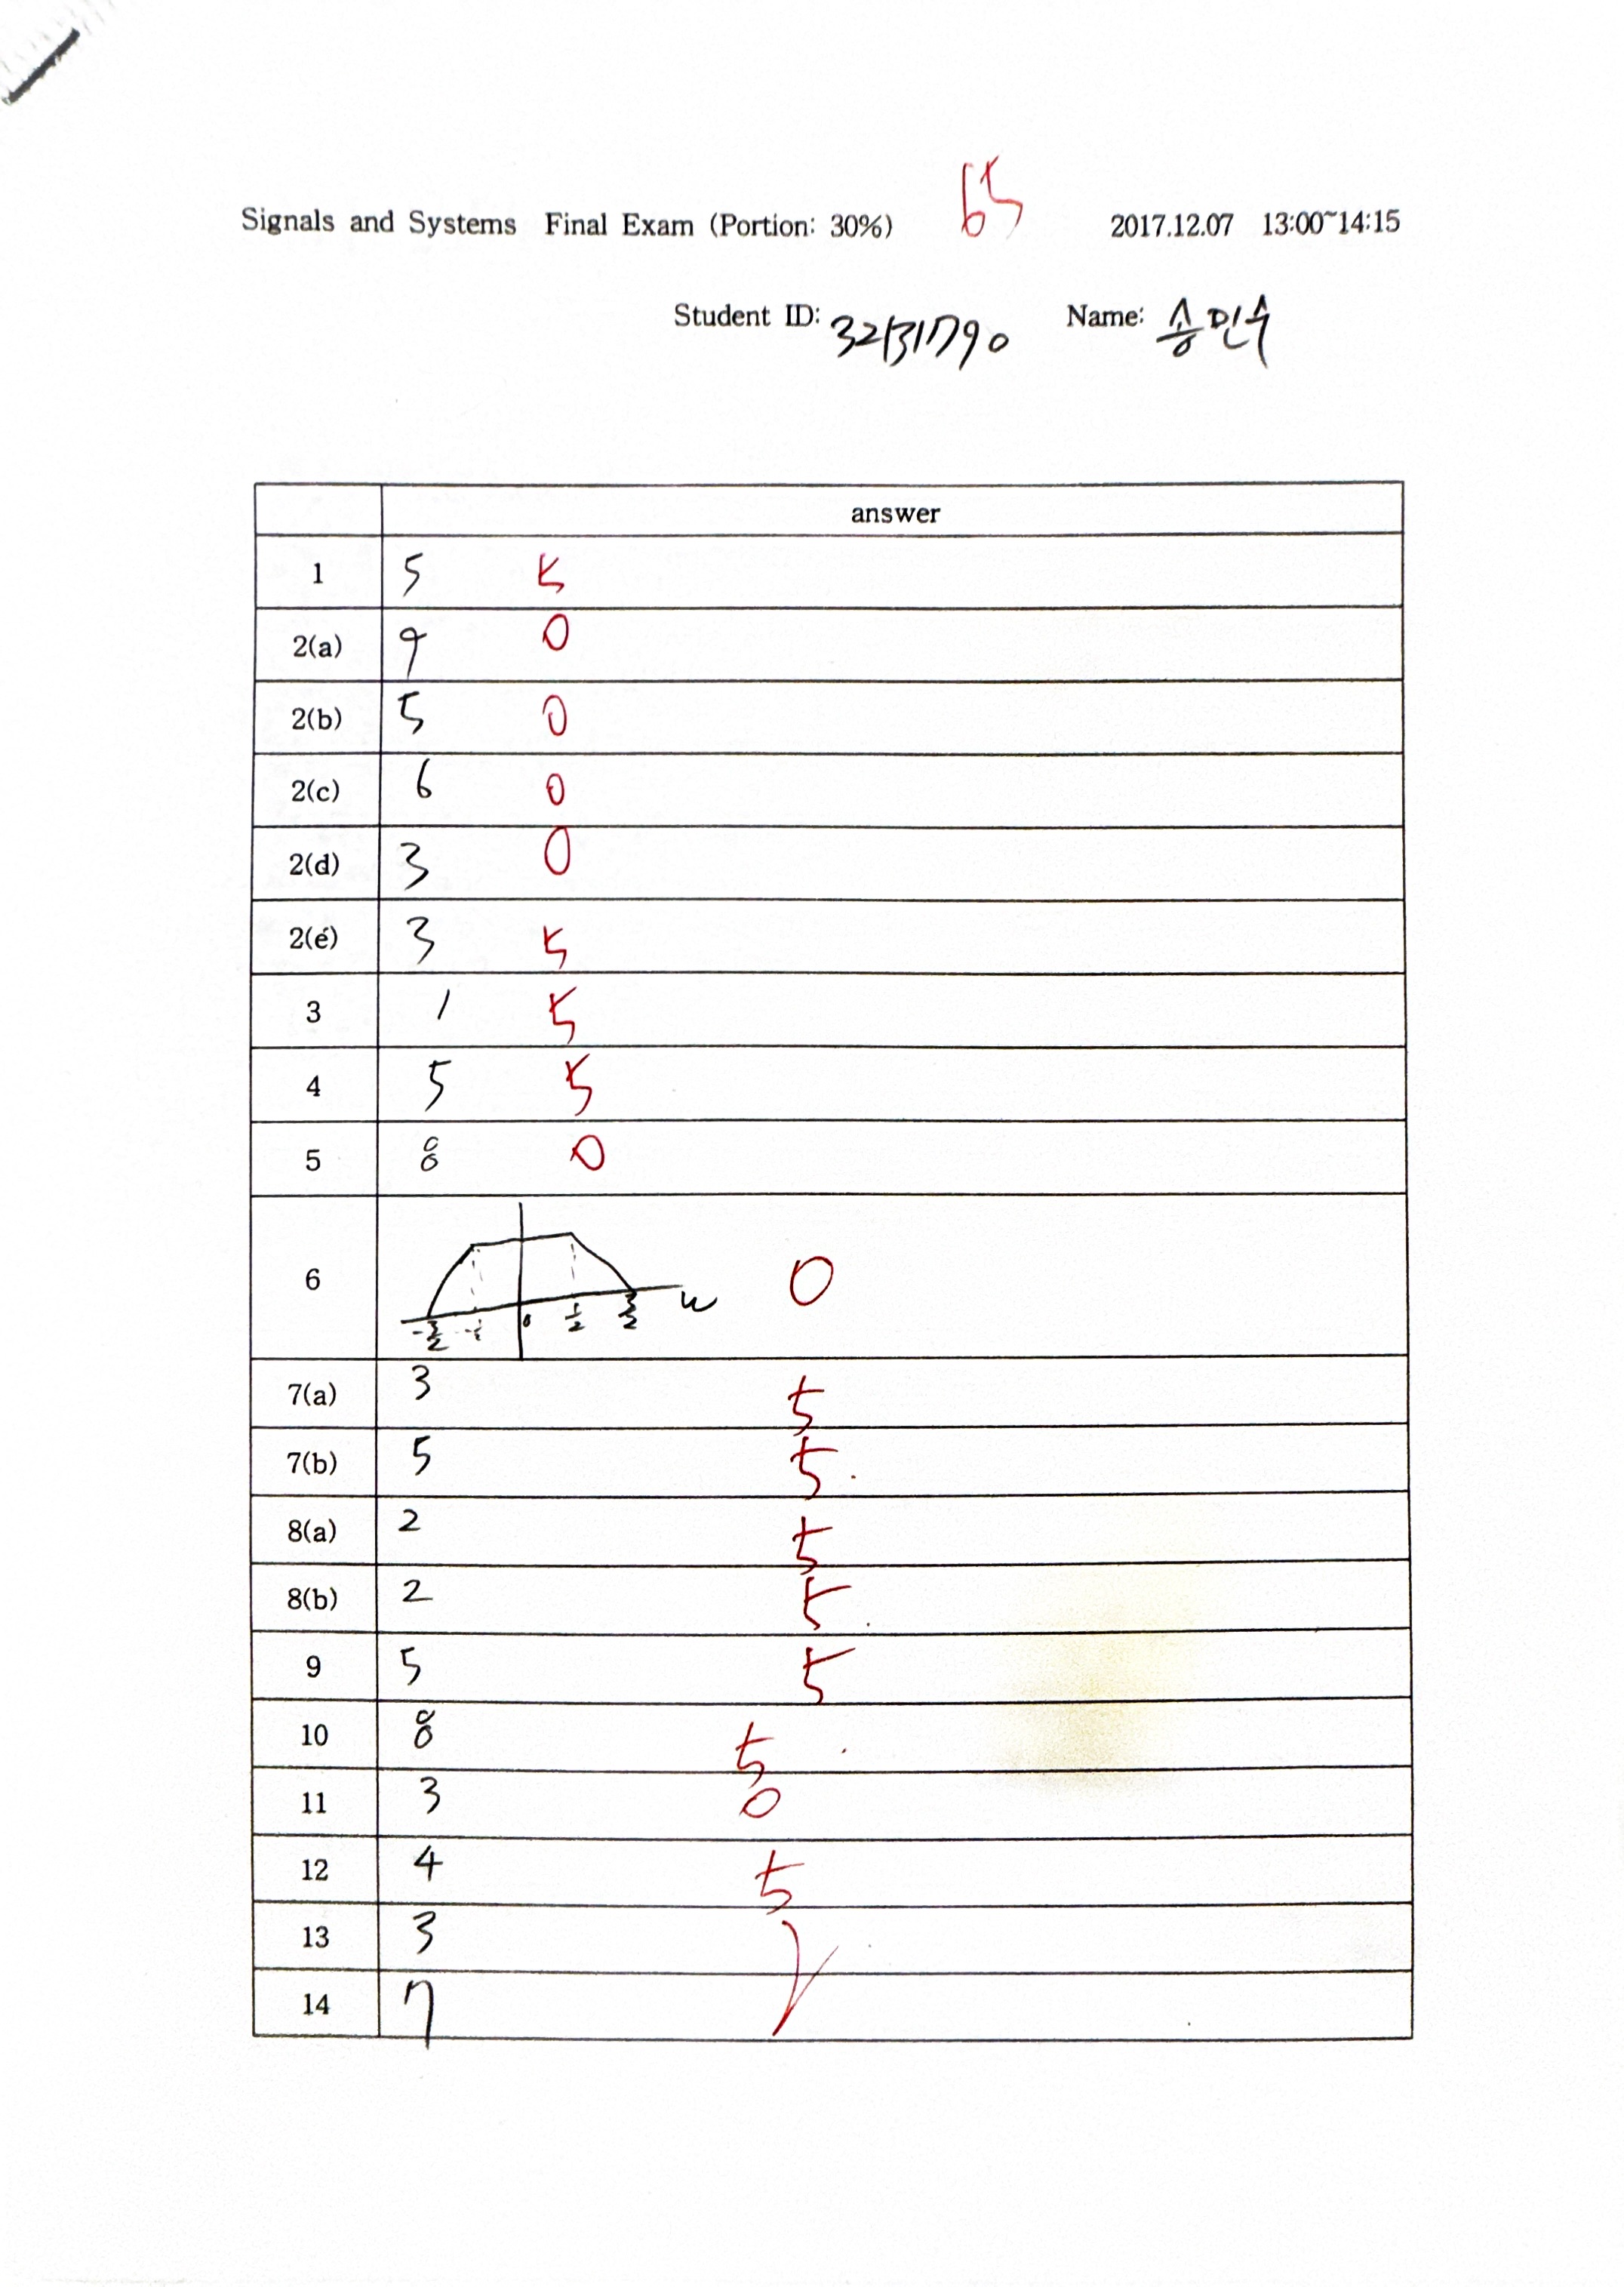 65
Signals and Systems Final Exam (Portion: 30%) 2017.12.07 13:00~14:15
Student ID: 32131790 Name: 송민수
answer
1 5 5
2(a) 9 0
2(b) 5 0
2(c) 6 0
2(d) 3 0
2(é) 3 5
3 1 5
4 5 5
5 8 0
6 0
-3/2 -1/2 0 1/2 3/2 w
7(a) 3 5
7(b) 5 5
8(a) 2 5
8(b) 2 5
9 5 5
10 8 5
11 3 0
12 4 5
13 3
14 7